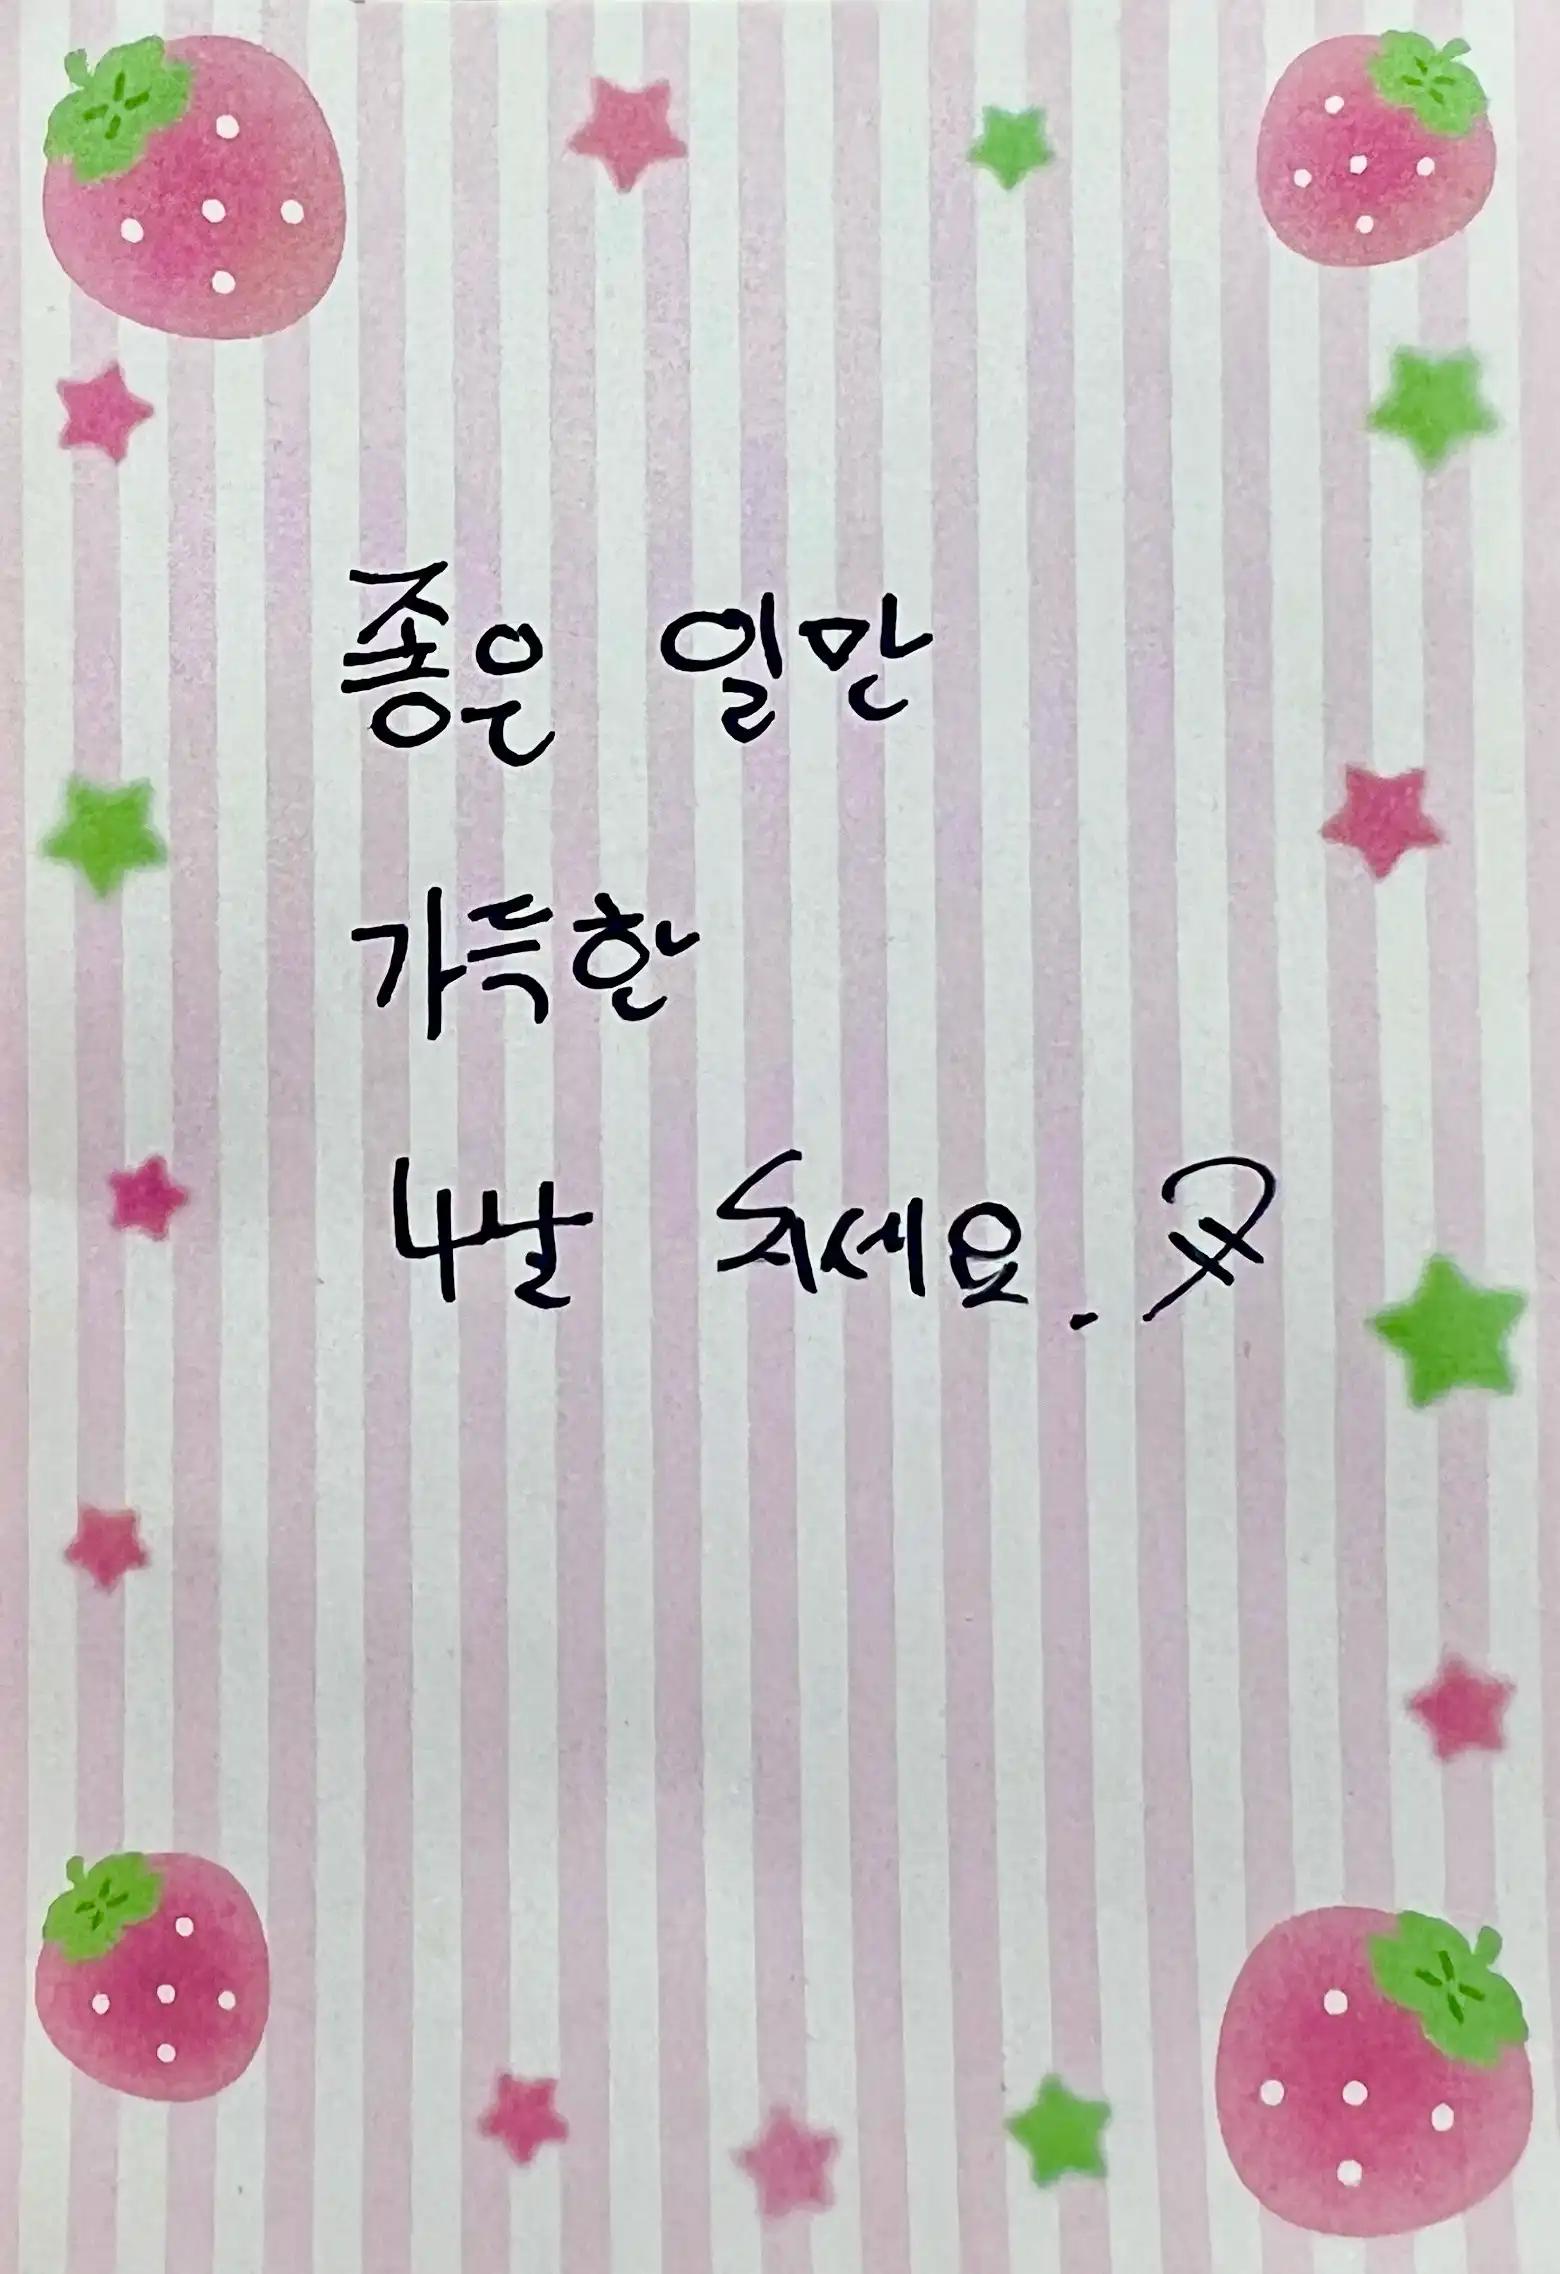 좋은 일만
가득한
나날 되세요.